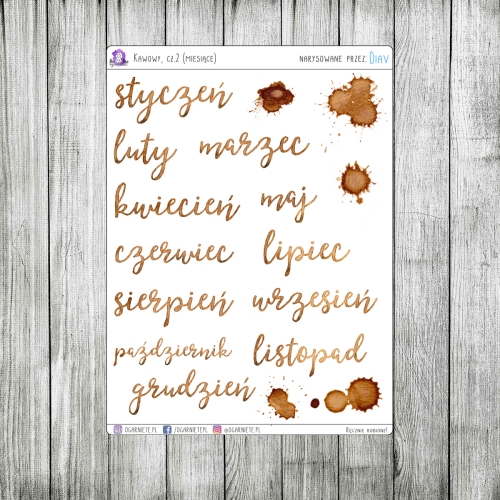 Kawowy, cz.2 (miesiące) narysowane przez: Diav
styczeń
luty marzec
kwiecień maj
czerwiec lipiec
sierpień wrzesień
październik listopad
grudzień
ogarniete.pl /ogarniete.pl @ogarniete.pl Ręcznie robione!